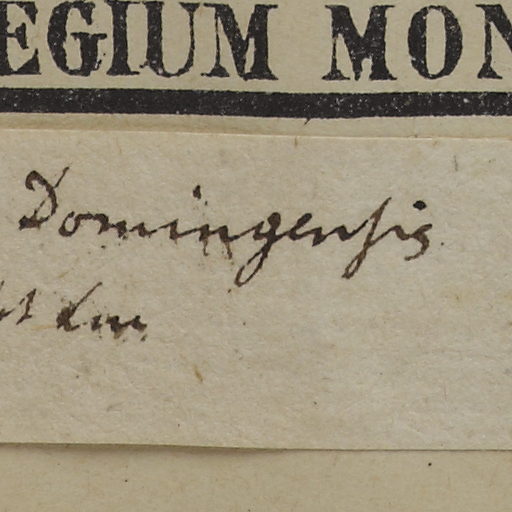 EGIUM MON
Domingensis